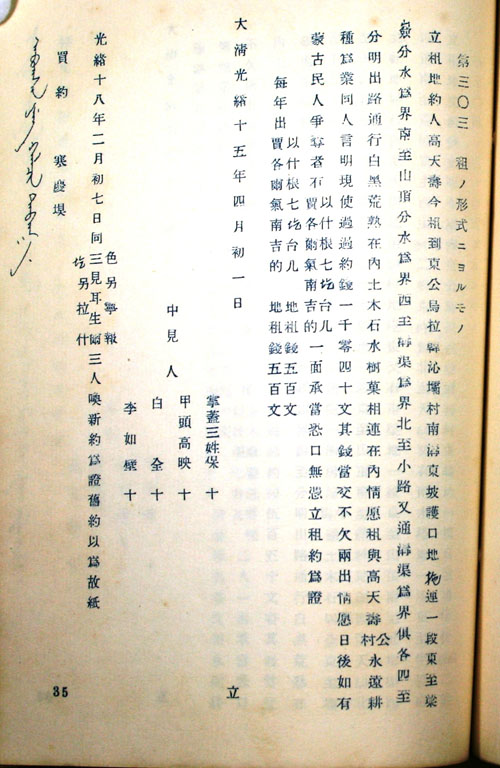 第三〇三 租ノ形式ニヨルモノ
立租地約人高天壽今租到東公烏拉 沁壩村南溝東坡護口地 連一段東至梁
分水爲界南至山頂分水爲界西至溝渠爲界北至小路又通溝渠爲界俱各四至
分明出路通行白黑荒熟在內土木石水樹菓相連在內情愿租與高天壽公村永遠耕
種爲業同人言明現使過過約錢一千零四十文其錢當交不欠兩出情愿日後如有
蒙古民人爭尋者有以什根七圪台儿賈各爾氣南吉的一面承當恐口無憑立租約爲證
每年出以什根七圪台儿 地租錢五百文
賈各爾氣南吉的 地租錢五百文
大淸光緖十五年四月初一日 立
中見人
掌蓋三姓保 十
甲頭高映 十
白 全 十
李如璧 十
光緖十八年二月初七日同色另擧報三見耳生爾圪另拉什三人喚新約爲證舊約以爲故紙
買約 寒 埧
35